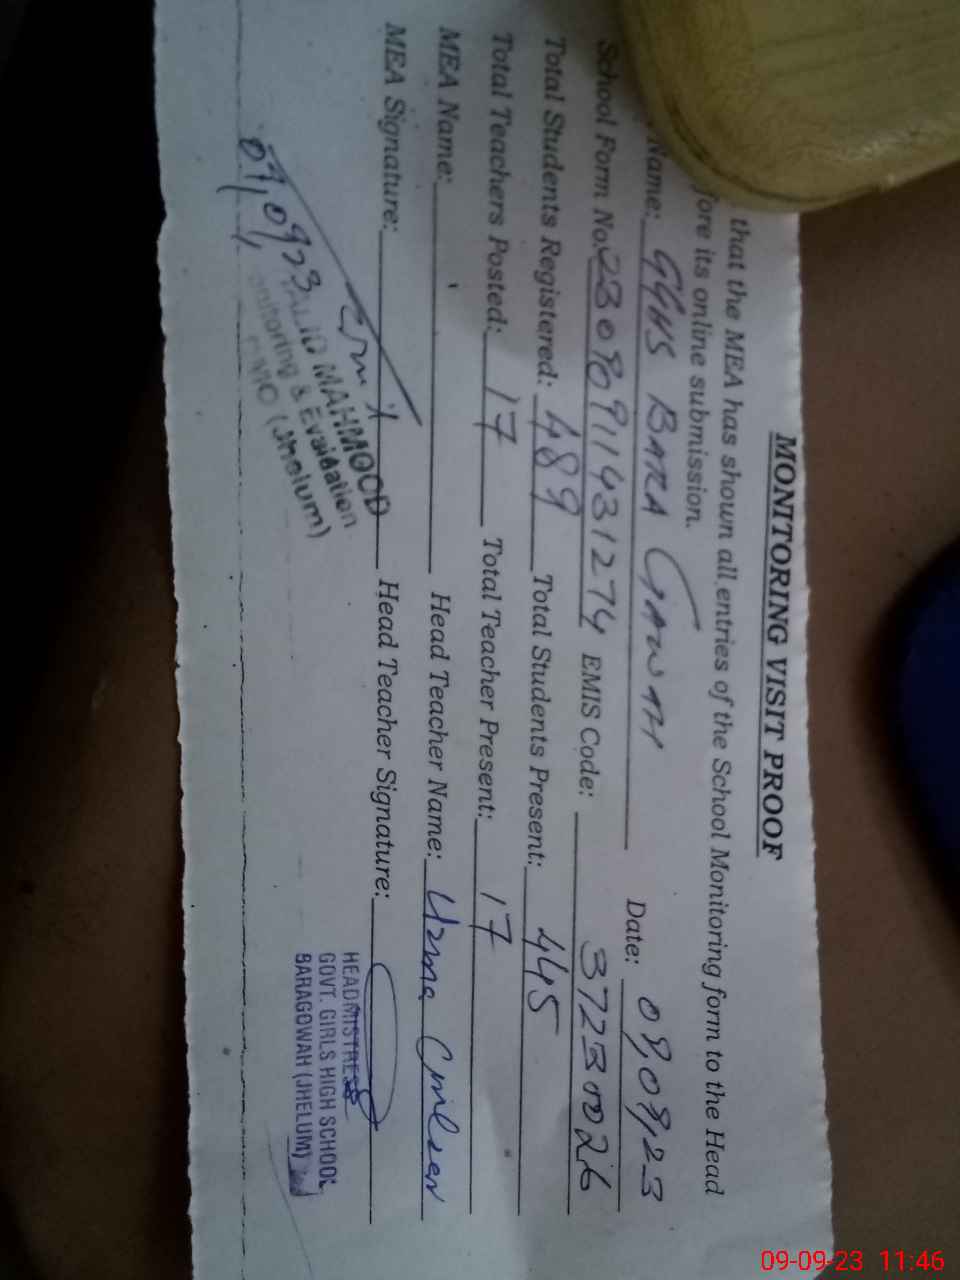 MONITORING VISIT PROOF
that the MEA has shown all entries of the School Monitoring form to the Head
fore its online submission.
Name: GGHS BARA GAWAH Date: 09,09,23
School Form No. 2309091143 1274 EMIS Code: 37230026
Total Students Registered: 489 Total Students Present: 445
Total Teachers Posted: 17 Total Teacher Present: 17
MEA Name: Head Teacher Name: Uzma
MEA Signature: Head Teacher Signature:
09,0923
MAHMOOD
Monitoring & Evaluation
(Jhelum)
HEADMISTRESS
GOVT. GIRLS HIGH SCHOOL
BARAGOWAH (JHELUM)
09-09-23 11:46